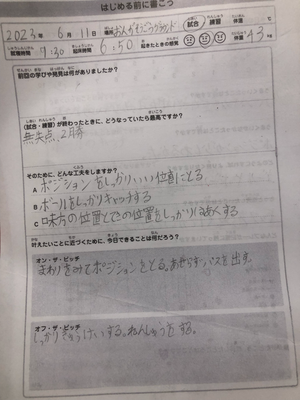 はじめる前に書こう
2023年 6月 11日 場所 おんがモこうグラウンド 試合・練習 体温 ℃
就寝時間 9:30 起床時間 6:50 起きたときの感覚 体重 43 kg
前回の学びや発見は何がありましたか?
(試合・練習)が終わったときに、どうなっていたら最高ですか?
無失点 2勝
そのために、どんな工夫をしますか?
A ポジションをしっかりいい位置にとる
B ボールをしっかりキャッチする
C 味方の位置とてきの位置をしっかりはあくする
叶えたいことに近づくために、今日できることは何だろう?
オン・ザ・ピッチ
まわりをみてポジションをとる。あせらずパスを出す
オフ・ザ・ピッチ
しっかりきゅうけいする。れんしゅうをする。